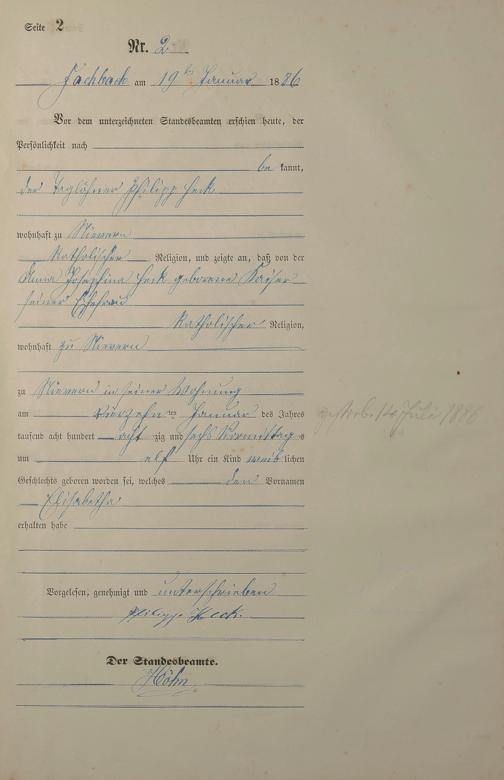 Seite 2
Nr. 2
Fachbach am 19ten Januar 1886
Vor dem unterzeichneten Standesbeamten erschien heute, der
Persönlichkeit nach
be kannt,
der Taglöhner Philipp Heck
wohnhaft zu Nievern
katholischer Religion, und zeigte an, daß von der
Anna Josephina Heck geborene Kaiser
seiner Ehefrau
katholischer Religion,
wohnhaft zu Nievern
zu Nievern in seiner Wohnung
am vierzehnten Januar des Jahres
tausend acht hundert acht zig und sechs Vormittags
um elf Uhr ein Kind weiblichen
Geschlechts geboren worden sei, welches den Vornamen
Elisabetha
erhalten habe
gestorb. 14 Juli 1886
Vorgelesen, genehmigt und unterschrieben
Philipp Heck.
Der Standesbeamte.
Höhn